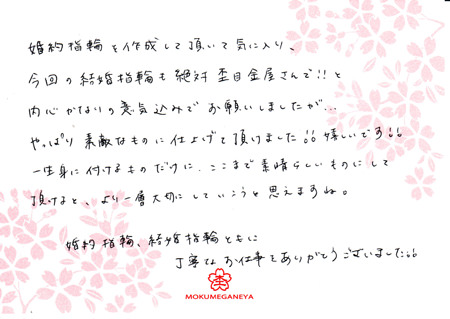 婚約指輪を作成して頂いて気に入り、
今回の結婚指輪も絶対杢目金屋さんで!!と
内心かなりの意気込みでお願いしましたが…
やっぱり素敵なものに仕上げて頂けました!!嬉しいです!!
一生身に付けるものだけに、ここまで素晴らしいものにして
頂けると、より一層大切にしていこうと思えますね。
婚約指輪、結婚指輪ともに
丁寧なお仕事をありがとうございました!!
杢
MOKUMEGANEYA